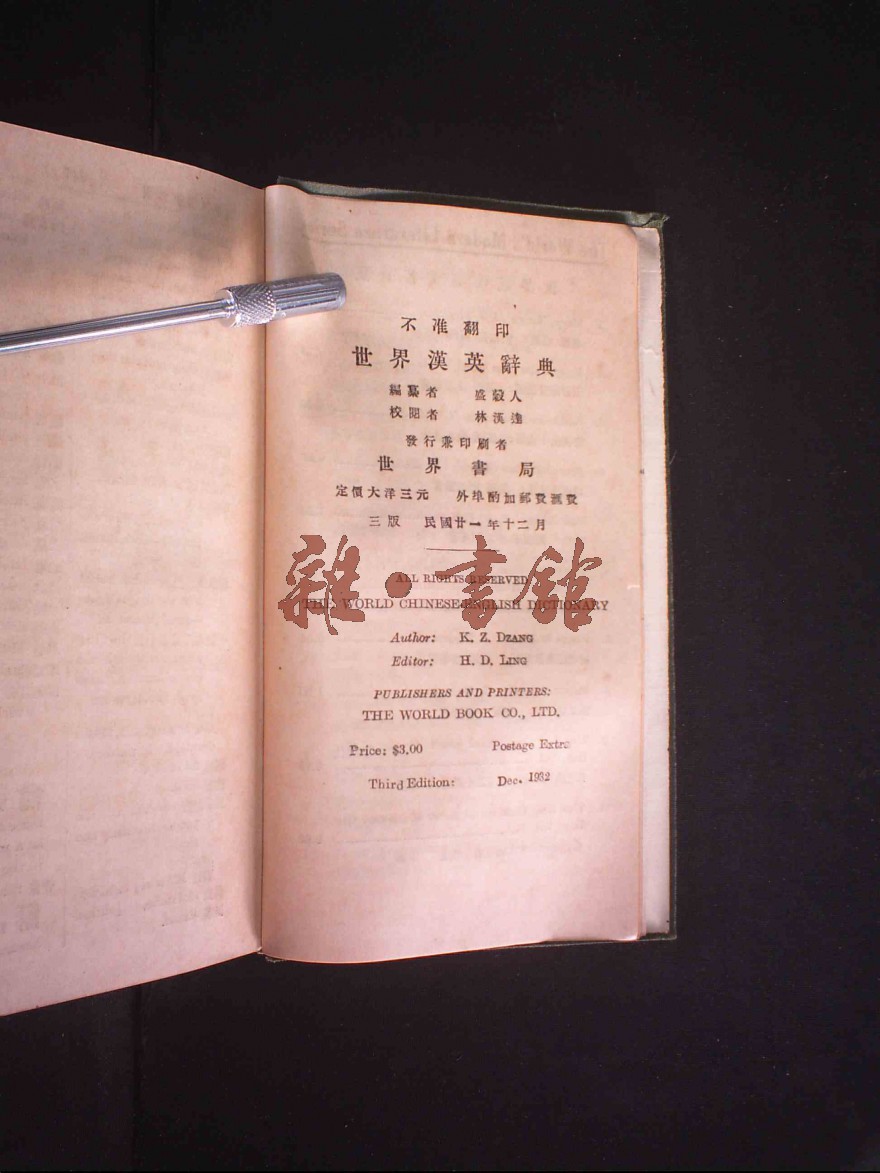 不准翻印
世界漢英辭典
編纂者 盛穀人
校閱者 林漢達
發行兼印刷者
世界書局
定價大洋三元 外埠酌加郵費滙費
三版 民國廿一年十二月
ALL RIGHTS RESERVED
THE WORLD CHINESE-ENGLISH DICTIONARY
雜·書館
Author: K. Z. DZANG
Editor: H. D. LING
PUBLISHERS AND PRINTERS:
THE WORLD BOOK CO., LTD.
Price: $3.00 Postage Extra
Third Edition: Dec. 1932